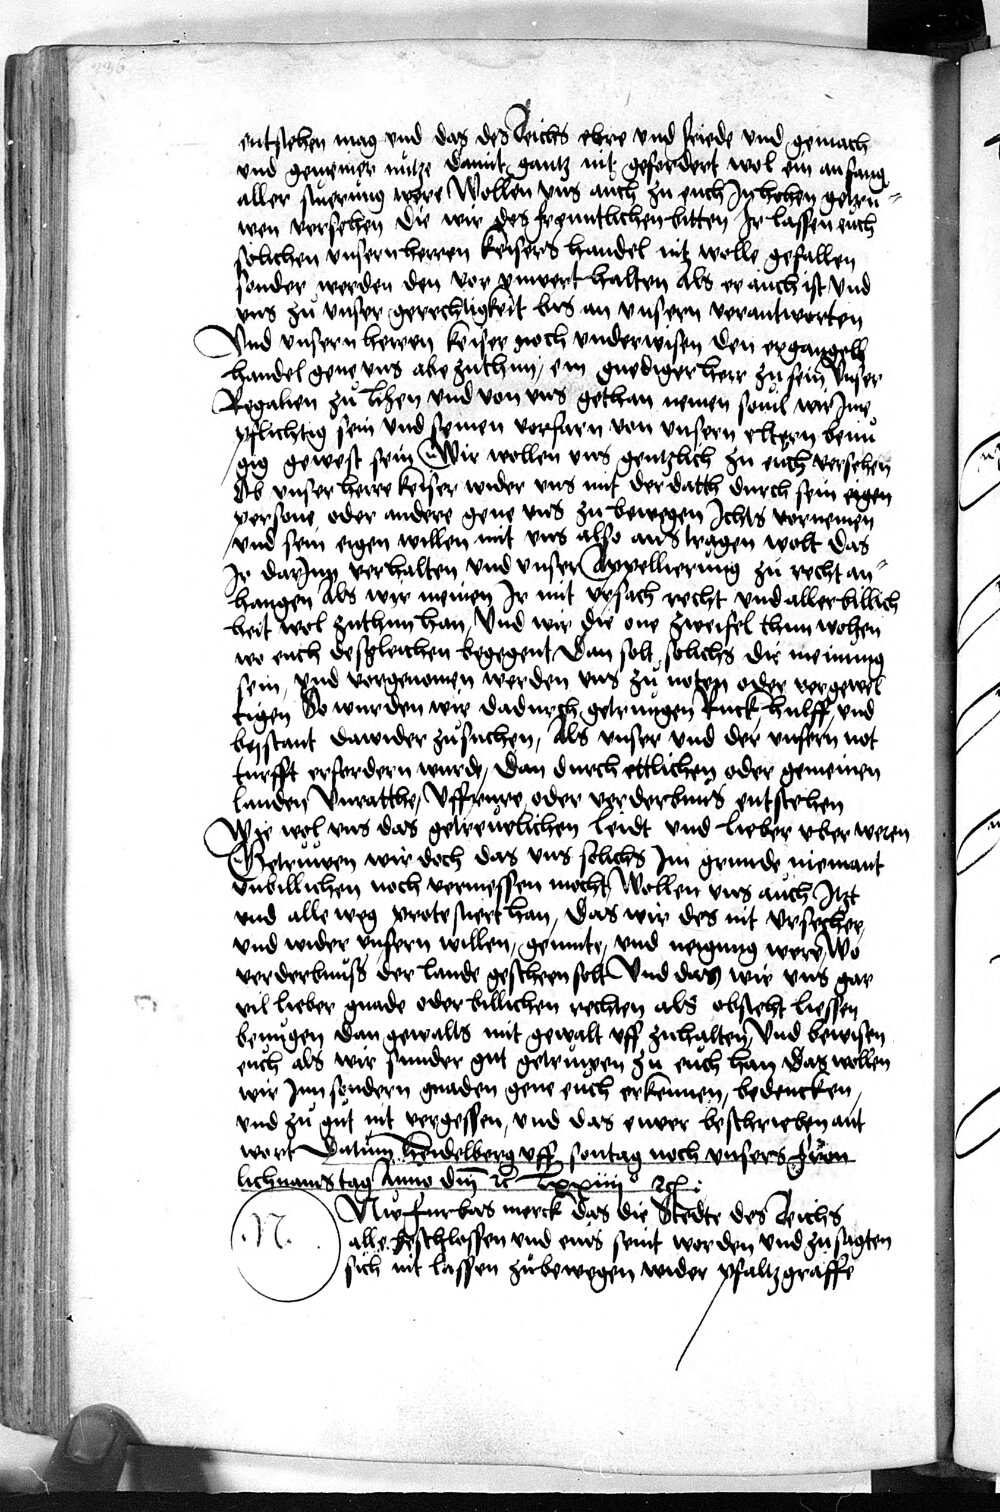 236
entstehen mag und das des Reichs ehre und friede und gemach
und gemeiner nütze damit gantz nit gefordert wol ein anfang
aller stuerung were Wollen uns auch zu euch In hohen getru-
wen versehen die wir des freuntlichen bitten Ir lassen euch
solichen unsern herren keisers handel nit wolle gefallen
sonder werden den vor unwert halten Als er auch ist Und
uns zu unser gerechtigkeit bis an unsern verantworten
Und unsern herren keiser noch underwisen den ergangen
handel gene uns abe zuthun, ein gnediger herr zu sein, Unser
Regalien zu lihen und von uns gethan nemen sovil wir Ime
pflichtig sein und seinen vorfarn von unsern eltern benu-
gig gewest sein Wir wollen uns gentzlich zu euch versehen
Ob unser herre keiser wider uns mit der datth durch sein eigen
persone oder andere gene uns zu bewegen Ichts vornemen
und sein eigen willen mit uns also ausztragen wolt das
Ir darInn verhalten und unser Appellierung zu recht an-
hangen Als wir meinen Ir mit ursach recht und aller billich
heit wol zuthun han, Und wir die one zweifel thun wolten
wo euch desgleichen begegent Dan solt solichs die meinung
sein, und vorgenomen werden uns zu noten oder vergewel
tigen So wurden wir dadurch getrungen Ruck hulff und
beistant dawider zusuchen, Als unser und der unsern not
turfft erfordern wurde, Dan durch ettlichen oder gemeinen
landen Unratthe, Uffrure oder verderbnus entstehen
Wie wol uns das getreuwelichen leidt und lieber uber weren
Getruwen wir doch das uns solichs Im grunde niemant
unbillichen noch vermessen mocht, Wollen uns auch Itzt
und alle weg protestiert han, Das wir des nit ursecher
und wider unsern willen, gemute, und neigung were, Wo
verderbnusz der lande gescheen solt Und das wir uns gar
vil lieber gnade oder billichen rechten als obsteht liessen
benugen dan gewalts mit gewalt uff zuhalten, Und bewisen
euch als wir sunder gut getruwen zu euch han Das wollen
wir Inn sondern gnaden gene euch erkennen, bedencken,
und zu gut nit vergessen, und das euwer beschrieben ant
wort Datum heidelberg uff sontag noch unsers hern
lichnamstag Anno dm̄ ꝛc̄ Lxxiiij° ꝛc̄
.N. Nu furbas merck das die Stedte des Reichs
alle beschlossen und eins seint worden und zusagten
sich nit lassen zubewegen wider pfaltzgraffe